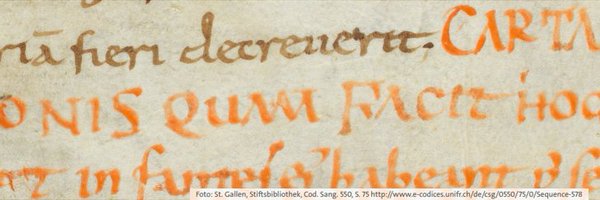 riā fieri decreuerit. CARTA
ONIS QUAM FACIT HOC
in
Foto: St. Gallen, Stiftsbibliothek, Cod. Sang. 550, S. 75 http://www.e-codices.unifr.ch/de/csg/0550/75/0/Sequence-578